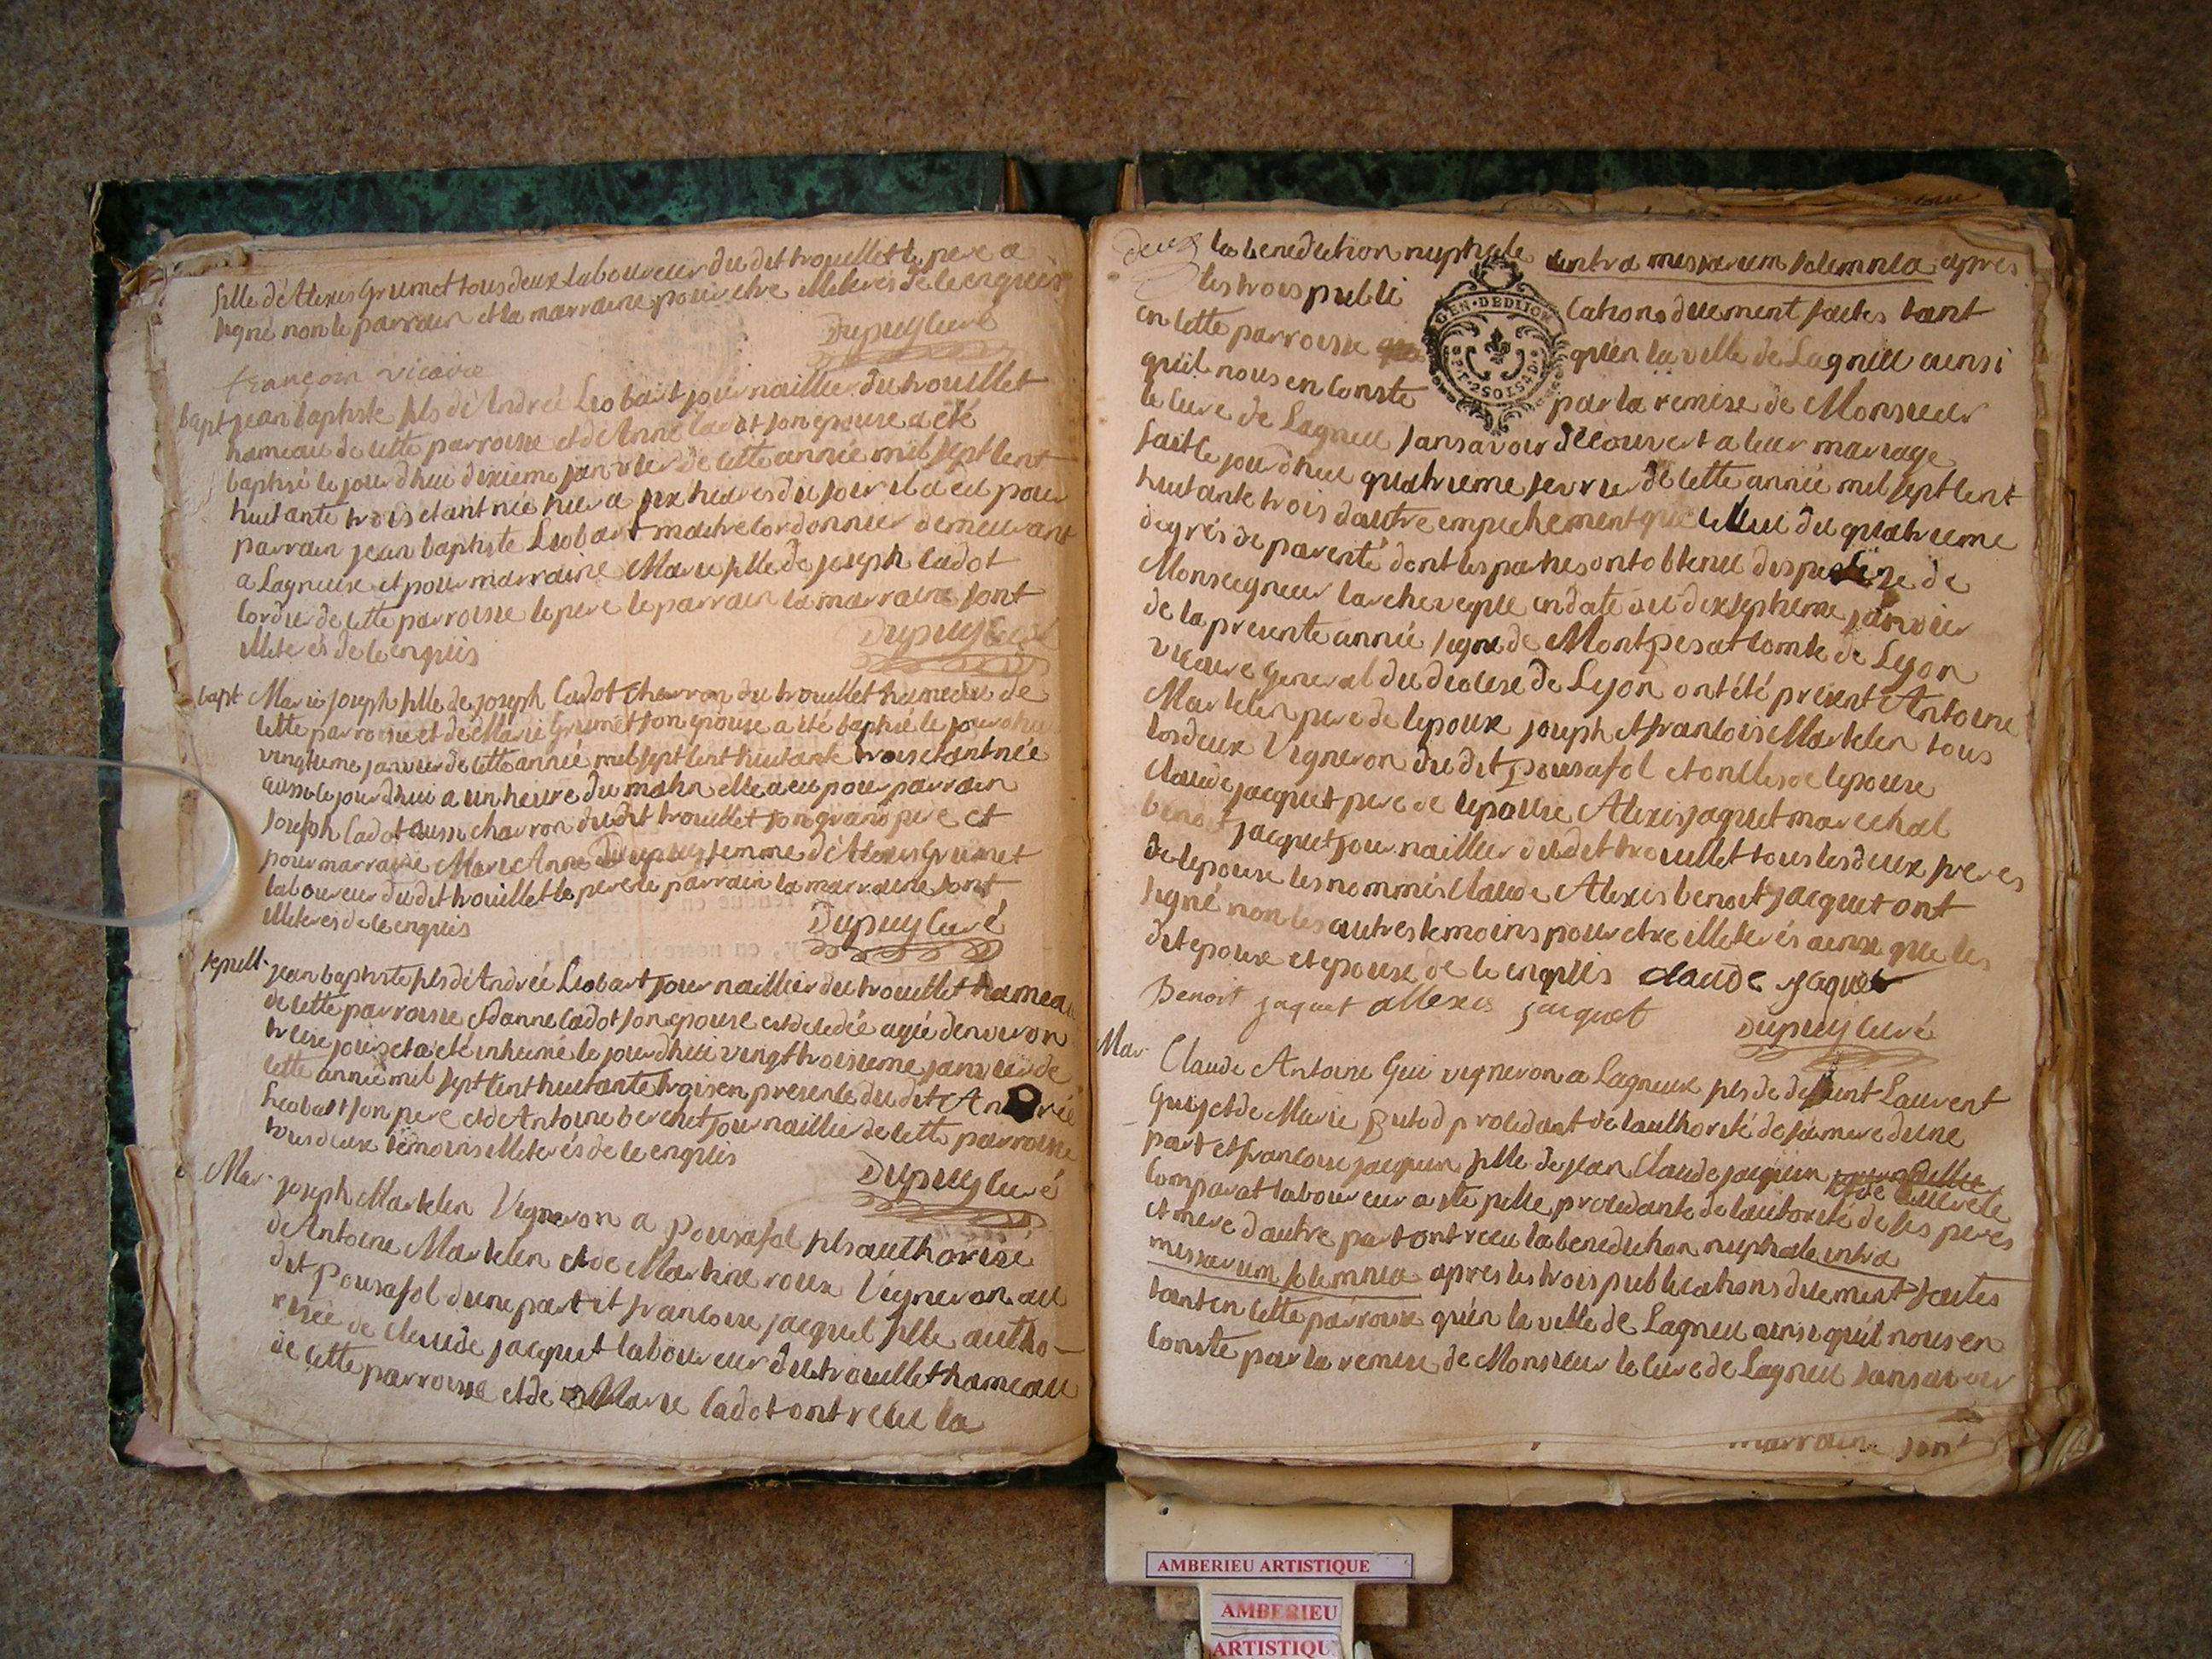 fille de Alexis Grumet tous deux laboureur du dit trouillet le pere a
signé non le parrain et la marraine pour etre illiterés de ce enquis
Dupuy curé
françois vicaire
bapt jean baptiste fils de Andreé Liobart journaillier du trouillet
hameau de cette parroisse et de Anne Cadot son epouse a été
baptisé ce jourdhui dixieme janvier de cette année mil sept cent
huitante trois etant née hier a six heures du soir il a eu pour
parrain jean baptiste Liobart maitre cordonnier demeurant
a Lagneux et pour marraine Marie fille de joseph Cadot
cordier de cette parroisse le pere le parrain la marraine sont
illiterés de ce enquis
Dupuy curé
bapt Marie joseph fille de joseph Cadot charron du trouillet hameau de
cette parroisse et de Marie Grumet son epouse a été baptisé ce jourdhui
vingtieme janvier de cette année mil sept cent huitante trois etant née
aussi ce jourdhui a un heure du matin elle a eu pour parrain
joseph Cadot aussi charron du dit trouillet son grand pere et
pour marraine Marie Anne Dupuy femme de Alexis Grumet
laboureur du dit trouillet le pere le parrain la marraine sont
illiterés de ce enquis
Dupuy curé
sepult. jean baptiste fils de Andreé Liobart journaillier du trouillet hameau
de cette parroisse et danne Cadot son epouse est decedée agée denviron
treise jours et a été inhumé ce jourdhui vingt troisieme janvier de
cette année mil sept cent huitante trois en presence du dit Andreé
Leobart son pere et de Antoine berchet journaillier de cette parroisse
tous deux temoins illiterés de ce enquis
Dupuy curé
Mar. joseph Martelin Vigneron a Pousafol fils authorisé
de Antoine Martelin et de Martine roux Vigneron au
dit Pousafol dune part et francoise jacquet fille autho-
risée de claude jacquet laboureur du trouillet hameau
de cette parroisse et de Marie Cadot ont recu la
deux la benediction nuptiale intra missarum solemnia apres
les trois publi cations duement faites tant
en cette parroisse quen la ville de Lagneu ainsi
quil nous en conste par la remise de Monsieur
le cure de Lagneu sans avoir decouvert a leur mariage
fait ce jourdhui quatrieme fevrier de cette année mil sept cent
huitante trois dautre empechement que celui du quatrieme
degrés de parenté dont les parties ont obtenu dispense de
Monseigneur larcheveque en date du dix septieme janvier
de la presente année signe de Montpesat comte de Lyon
vicaire general du diocese de Lyon ont été présent Antoine
Martelin pere de lepoux joseph et francois Martelin tous
les deux Vigneron du dit Pousafol et oncles de lepouse
claude jacquet pere de lepouse Alexis jaquet marechal
benoit jacquet journaillier du dit trouillet tous les deux freres
de lepouse les nommés claude Alexis benoit jacquet ont
signé non les autres temoins pour etre illiterés ainsi que les
dit epoux et epouse de ce enquis claude jaquet
Benoit jaquet allexis jacquet
Dupuy curé
Mar. Claude Antoine Gui vigneron a Lagneux fils de defunt Laurent
Guy et de Marie Butod procedant de lauthorité de sa mere dune
part et francoise jacquin fille de jean Claude jacquin
et de
Comparat laboureur a fille procedante de lautorité de ses peres
et mere dautre part ont recu la benediction nuptiale intra
missarum solemnia apres les trois publications duement faites
tant en cette parroisse quen la ville de Lagneu ainsi quil nous en
conste par la remise de Monsieur le cure de Lagneu sans avoir
marraine sont
GEN·DEDIJON
AMBERIEU ARTISTIQUE
AMBERIEU
ARTISTIQU